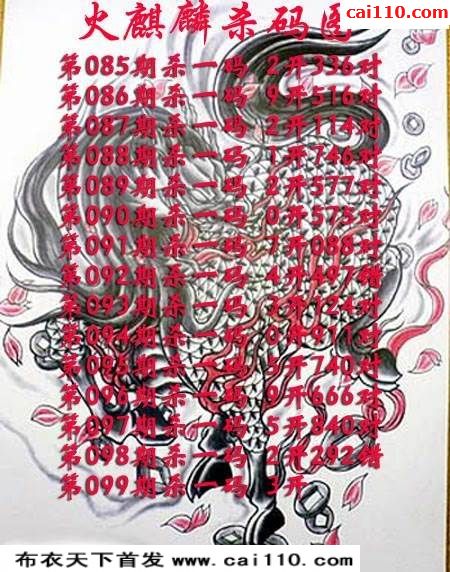 cai110.com
火麒麟杀码图
第085期杀一码 2开336对
第086期杀一码 9开516对
第087期杀一码 2开114对
第088期杀一码 1开746对
第089期杀一码 2开577对
第090期杀一码 0开575对
第091期杀一码 7开088对
第092期杀一码 4开497错
第093期杀一码 3开124对
第094期杀一码 0开911对
第095期杀一码 5开740对
第096期杀一码 9开666对
第097期杀一码 5开840对
第098期杀一码 2开292错
第099期杀一码 3开
布衣天下首发 www.cai110.com